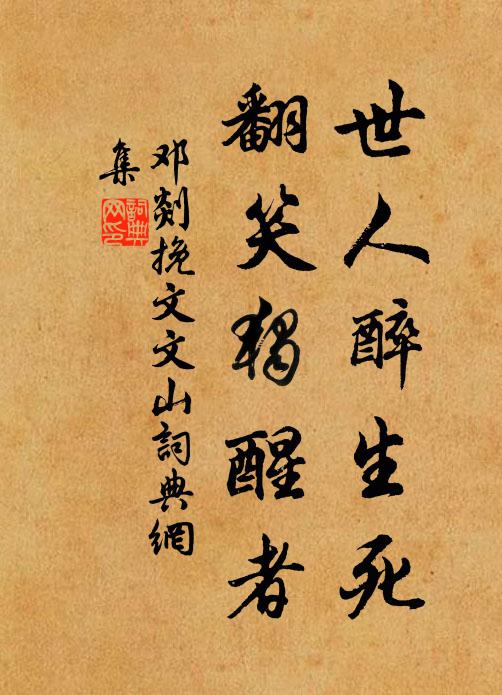 世人醉生死
翻笑独醒者
邓剡挽文文山詞典網
集
詞典
网印